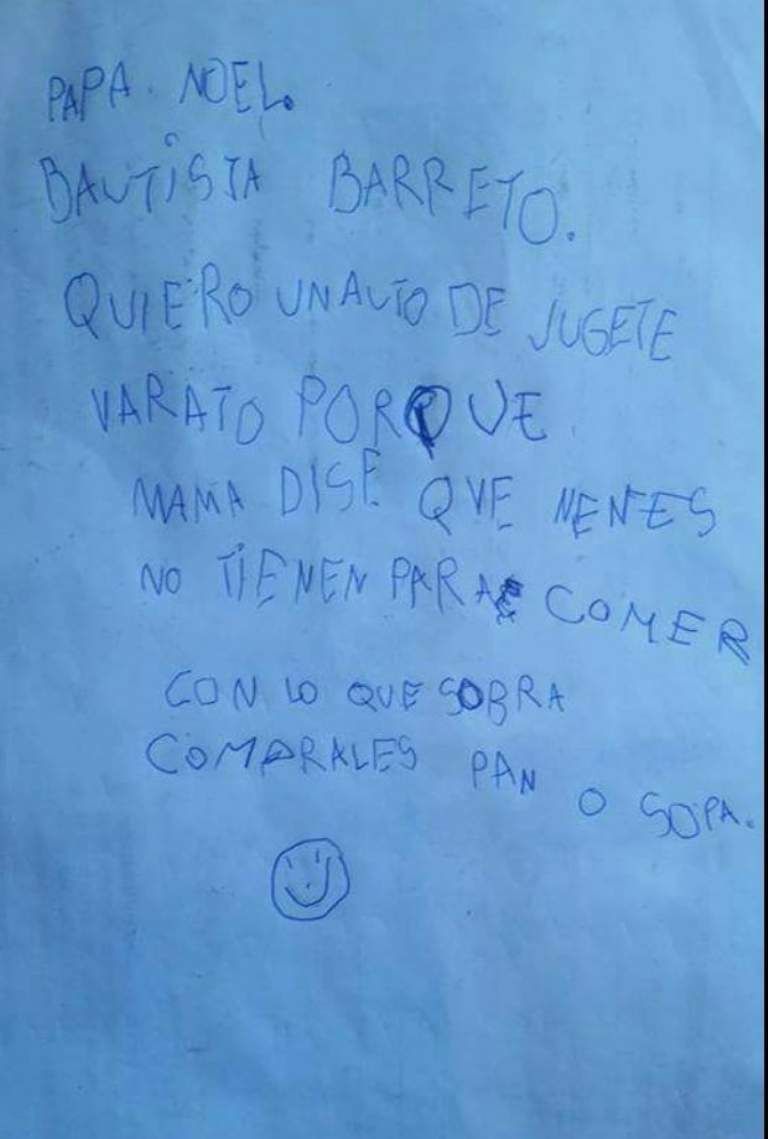 PAPA. NOEL.
BAUTISTA BARRETO.
QUIERO UN AUTO DE JUGETE
VARATO PORQUE
MAMA DISE QUE NENES
NO TIENEN PARA COMER
CON LO QUE SOBRA
COMPRALES PAN O SOPA.